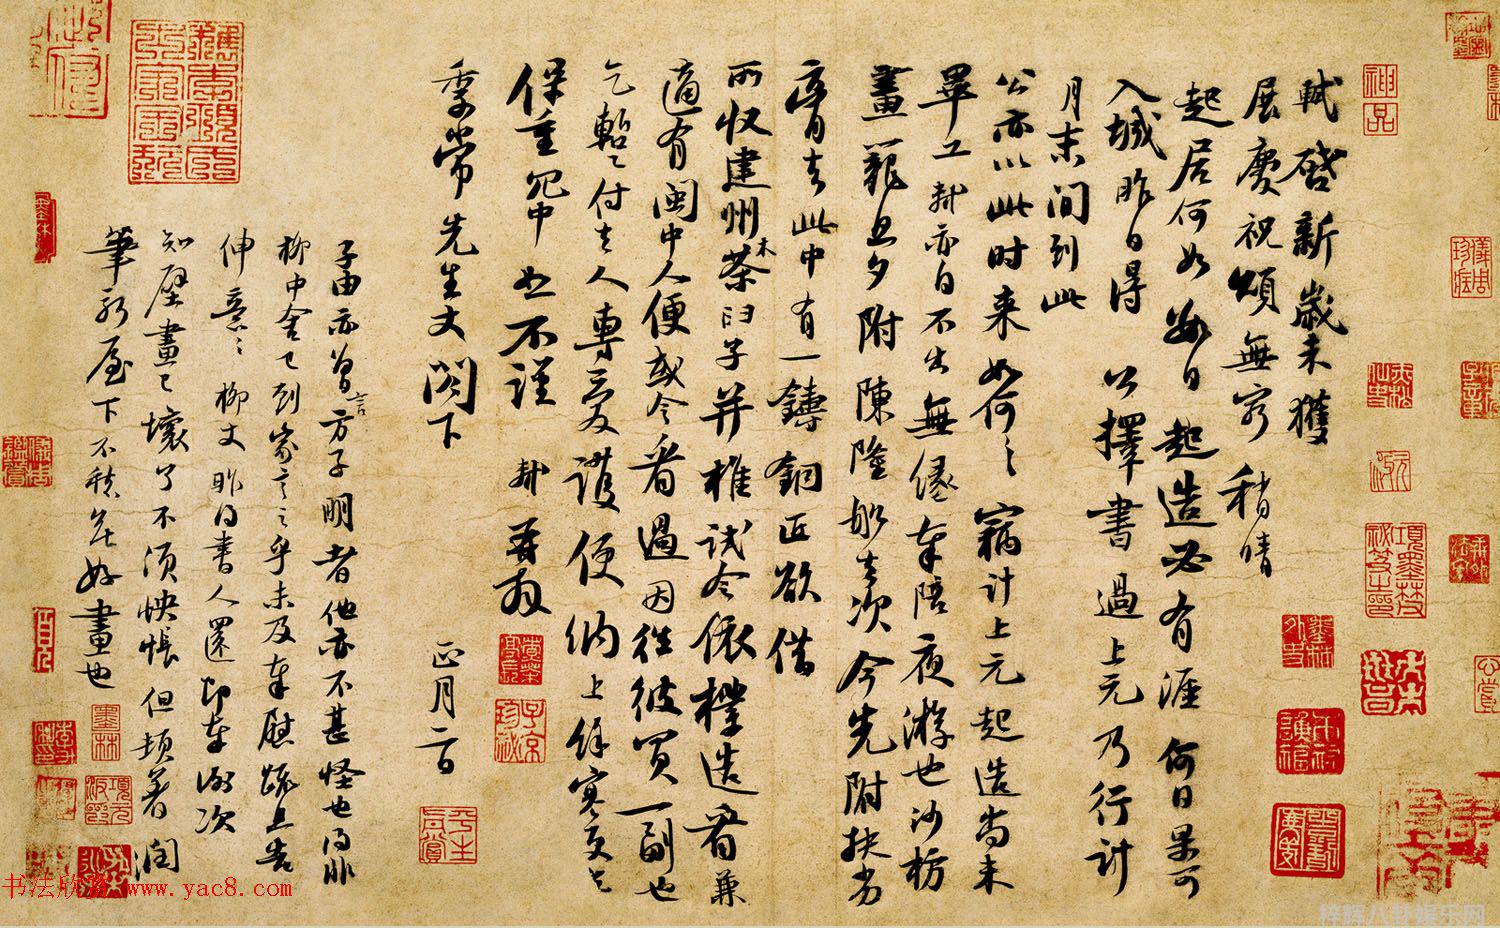 軾啓新歲未獲
展慶祝頌無窮稍晴
起居何如數日起造必有涯何日果可
入城昨日得公擇書過上元乃行計
月末間到此
公亦以此時来如何〻竊計上元起造尚未
畢工軾亦自不出無緣奉陪夜游也沙枋
畫籠旦夕附陳隆船去次今先附扶劣
膏去此中有一鑄銅匠欲借
所收建州木茶臼子并椎試令依樣造看兼
適有閩中人便或令看過因往彼買一副也
乞暫付去人專愛護便納上餘寒更乞
保重冗中恕不謹軾再拜
季常先生丈閤下
正月二日
子由亦曾言方子明者他亦不甚怪也得非
柳中舍已到家言之乎未及奉慰疏且告
伸意〻柳丈昨得書人還即奉謝次
知壁畫已壞了不須怏悵但頓著潤
筆新屋下不愁無好畫也
神品
書法欣賞 www.yac8.com